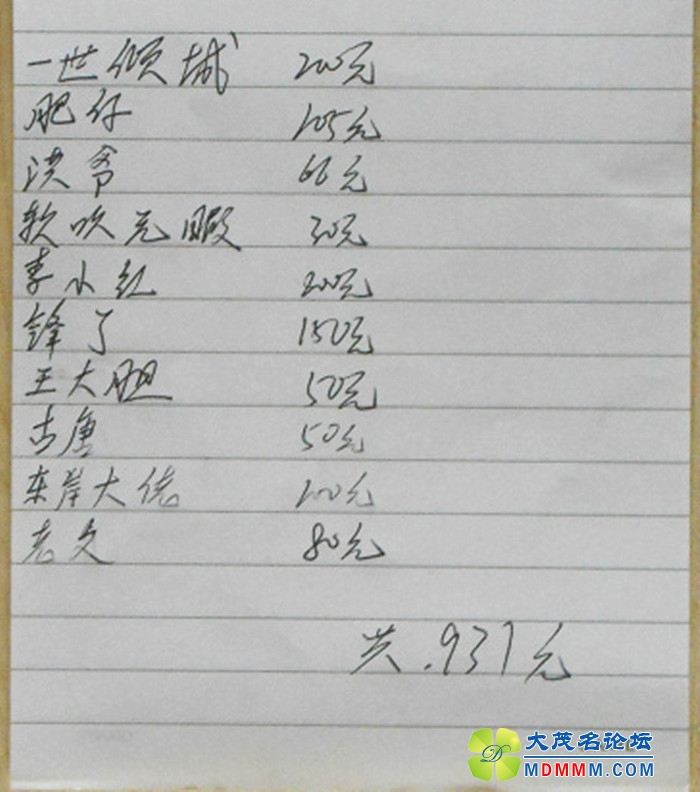 一世倾城 200元
肥仔 105元
洪爷 66元
软吹无暇 30元
李小红 200元
锋了 150元
王大胆 50元
古唐 50元
东岸大佬 100元
老文 80元
共.937元
大茂名论坛
MDMMM.COM